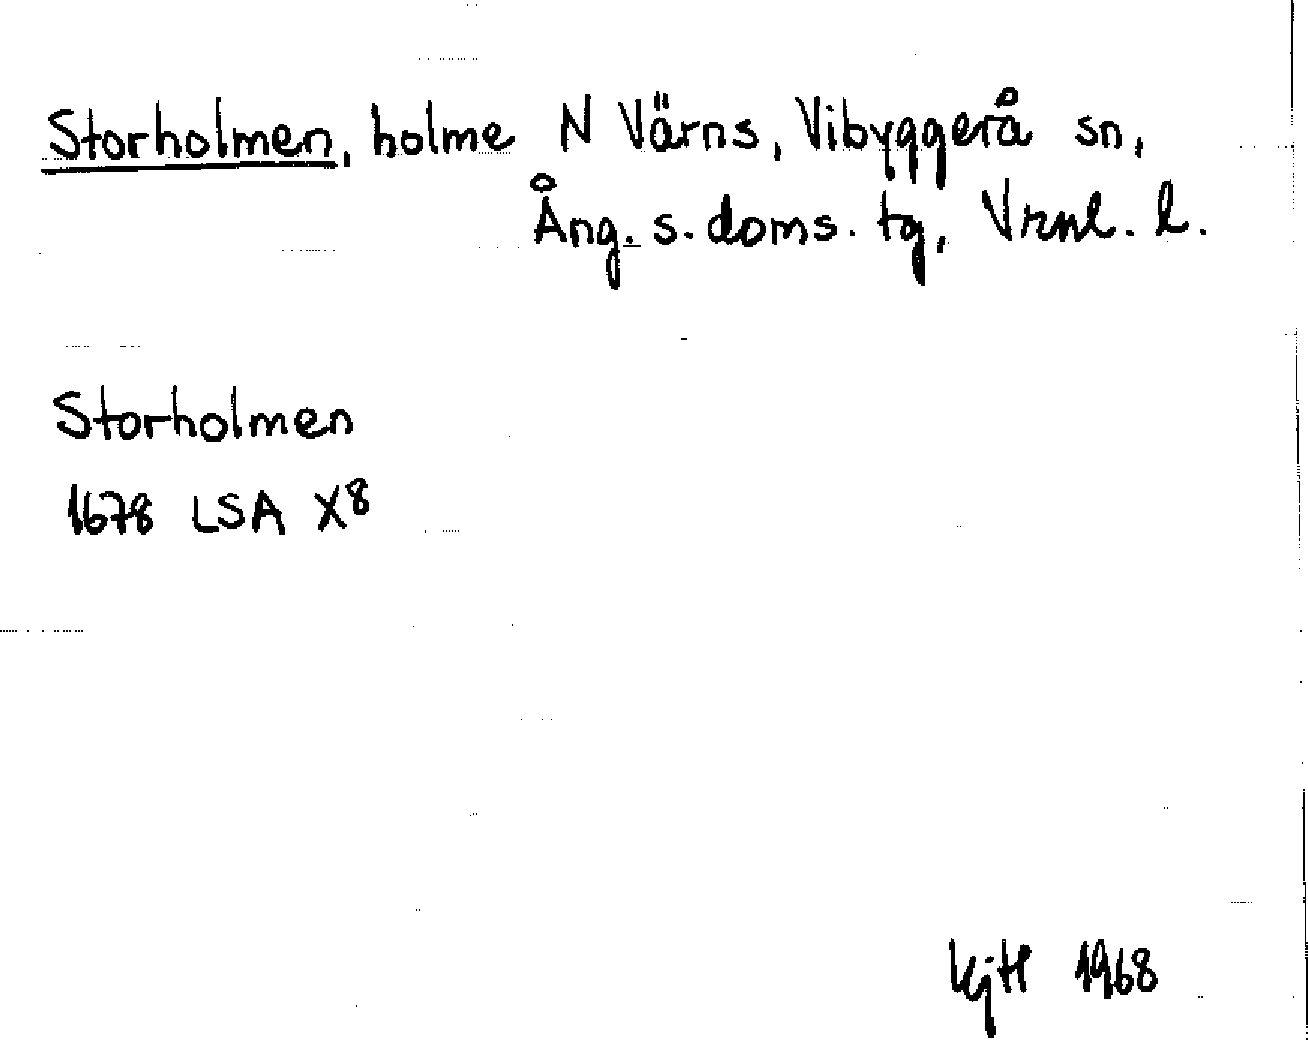 Storholmen, holme N Värns, Vibyggerå sn,
Ång. s. doms. tg, Vrnl. l.
Storholmen
1678 LSA X8
KjH 1968